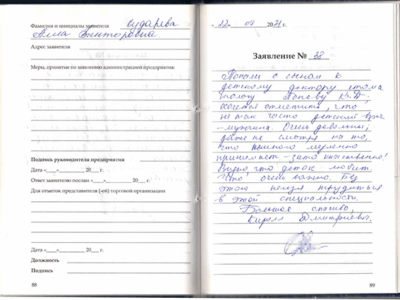 Фамилия и инициалы заявителя Сударева
Алина Викторовна
Адрес заявителя
Меры, принятые по заявлению администрацией предприятия:
Подпись руководителя предприятия
Дата «___»______20___ г.
Ответ заявителю послан «___»______20___ г.
Для отметок представителя (-ей) торговой организации
Дата «___»______20___ г.
Должность
Подпись
88
22 03 2021 г.
Заявление № 32
Попали с сыном к
детскому доктору стома
тологу
хочется отметить, что
не так часто детский врач
- мужчина. Очень довольны,
даже не смотря на то,
что немного медленно
принимает - зато качественно!
Видно, что деток любит.
Что очень важно. Без
этого нельзя трудиться
в этой специальности.
Большое спасибо,
Кирилл Дмитриевич.
89